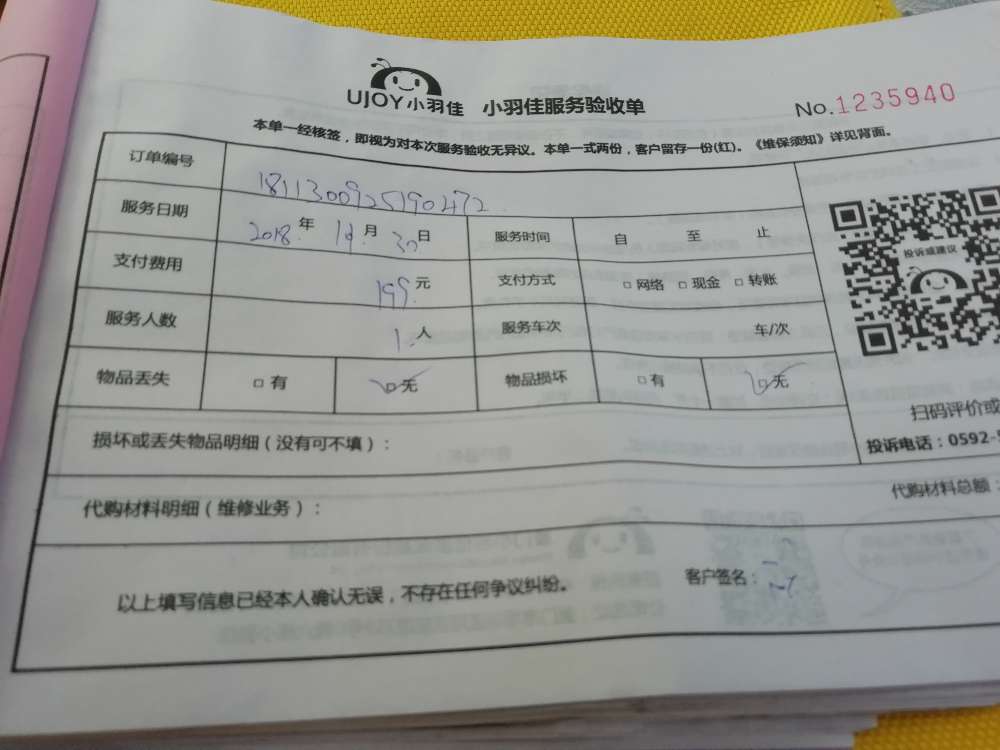 UJOY小羽佳 小羽佳服务验收单 No.1235940
本单一经核签，即视为对本次服务验收无异议。本单一式两份，客户留存一份(红)。《维保须知》详见背面。
订单编号 1811300925190472
服务日期 2018年 月30日 服务时间 自 至 止
投诉或建议
支付费用 199元 支付方式 □网络 □现金 □转账
服务人数 1人 服务车次 车/次
物品丢失 □有 □无 物品损坏 □有 □无
扫码评价或
损坏或丢失物品明细（没有可不填）：
投诉电话：0592-
代购材料明细（维修业务）： 代购材料总额：
以上填写信息已经本人确认无误，不存在任何争议纠纷。 客户签名：